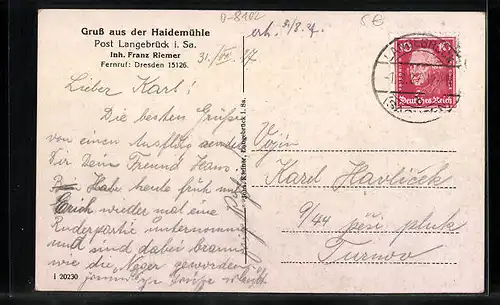 D-8102
erh. 3/8.27.
5€
Gruß aus der Haidemühle
Post Langebrück i. Sa.
Inh. Franz Riemer
Fernruf: Dresden 15126.
31./VII. 27
Lieber Karl!
Die besten Grüße
von einem Ausflug sendet
Dir Dein Freund Hans
Habe heute früh mit
Erich wieder mal eine
Ruderpartie unternommen
und sind dabei braun
wie die Neger geworden
Grüße
i 20230
Langebrück i. Sa.
Deutsches Reich
Vojín
Karel Havlíček
9/44 pěší pluk
Turnov